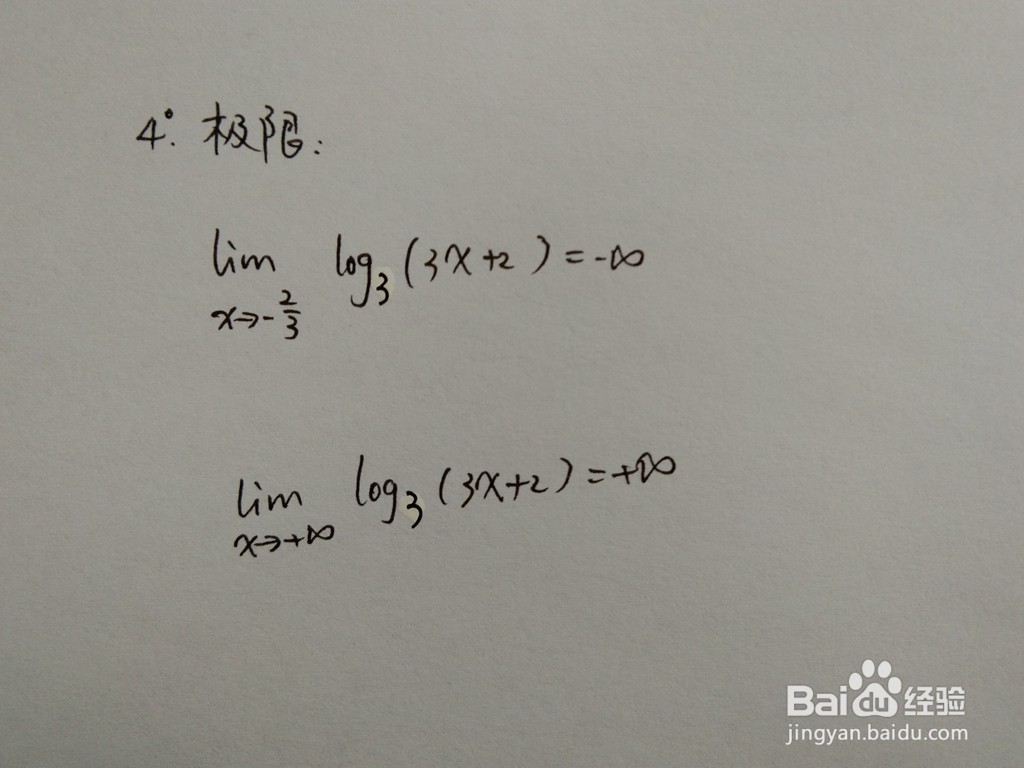 4°. 极限:
lim log₃(3x+2) = -∞
x→-2/3
lim log₃(3x+2) = +∞
x→+∞
Bai du 经验
jingyan.baidu.com